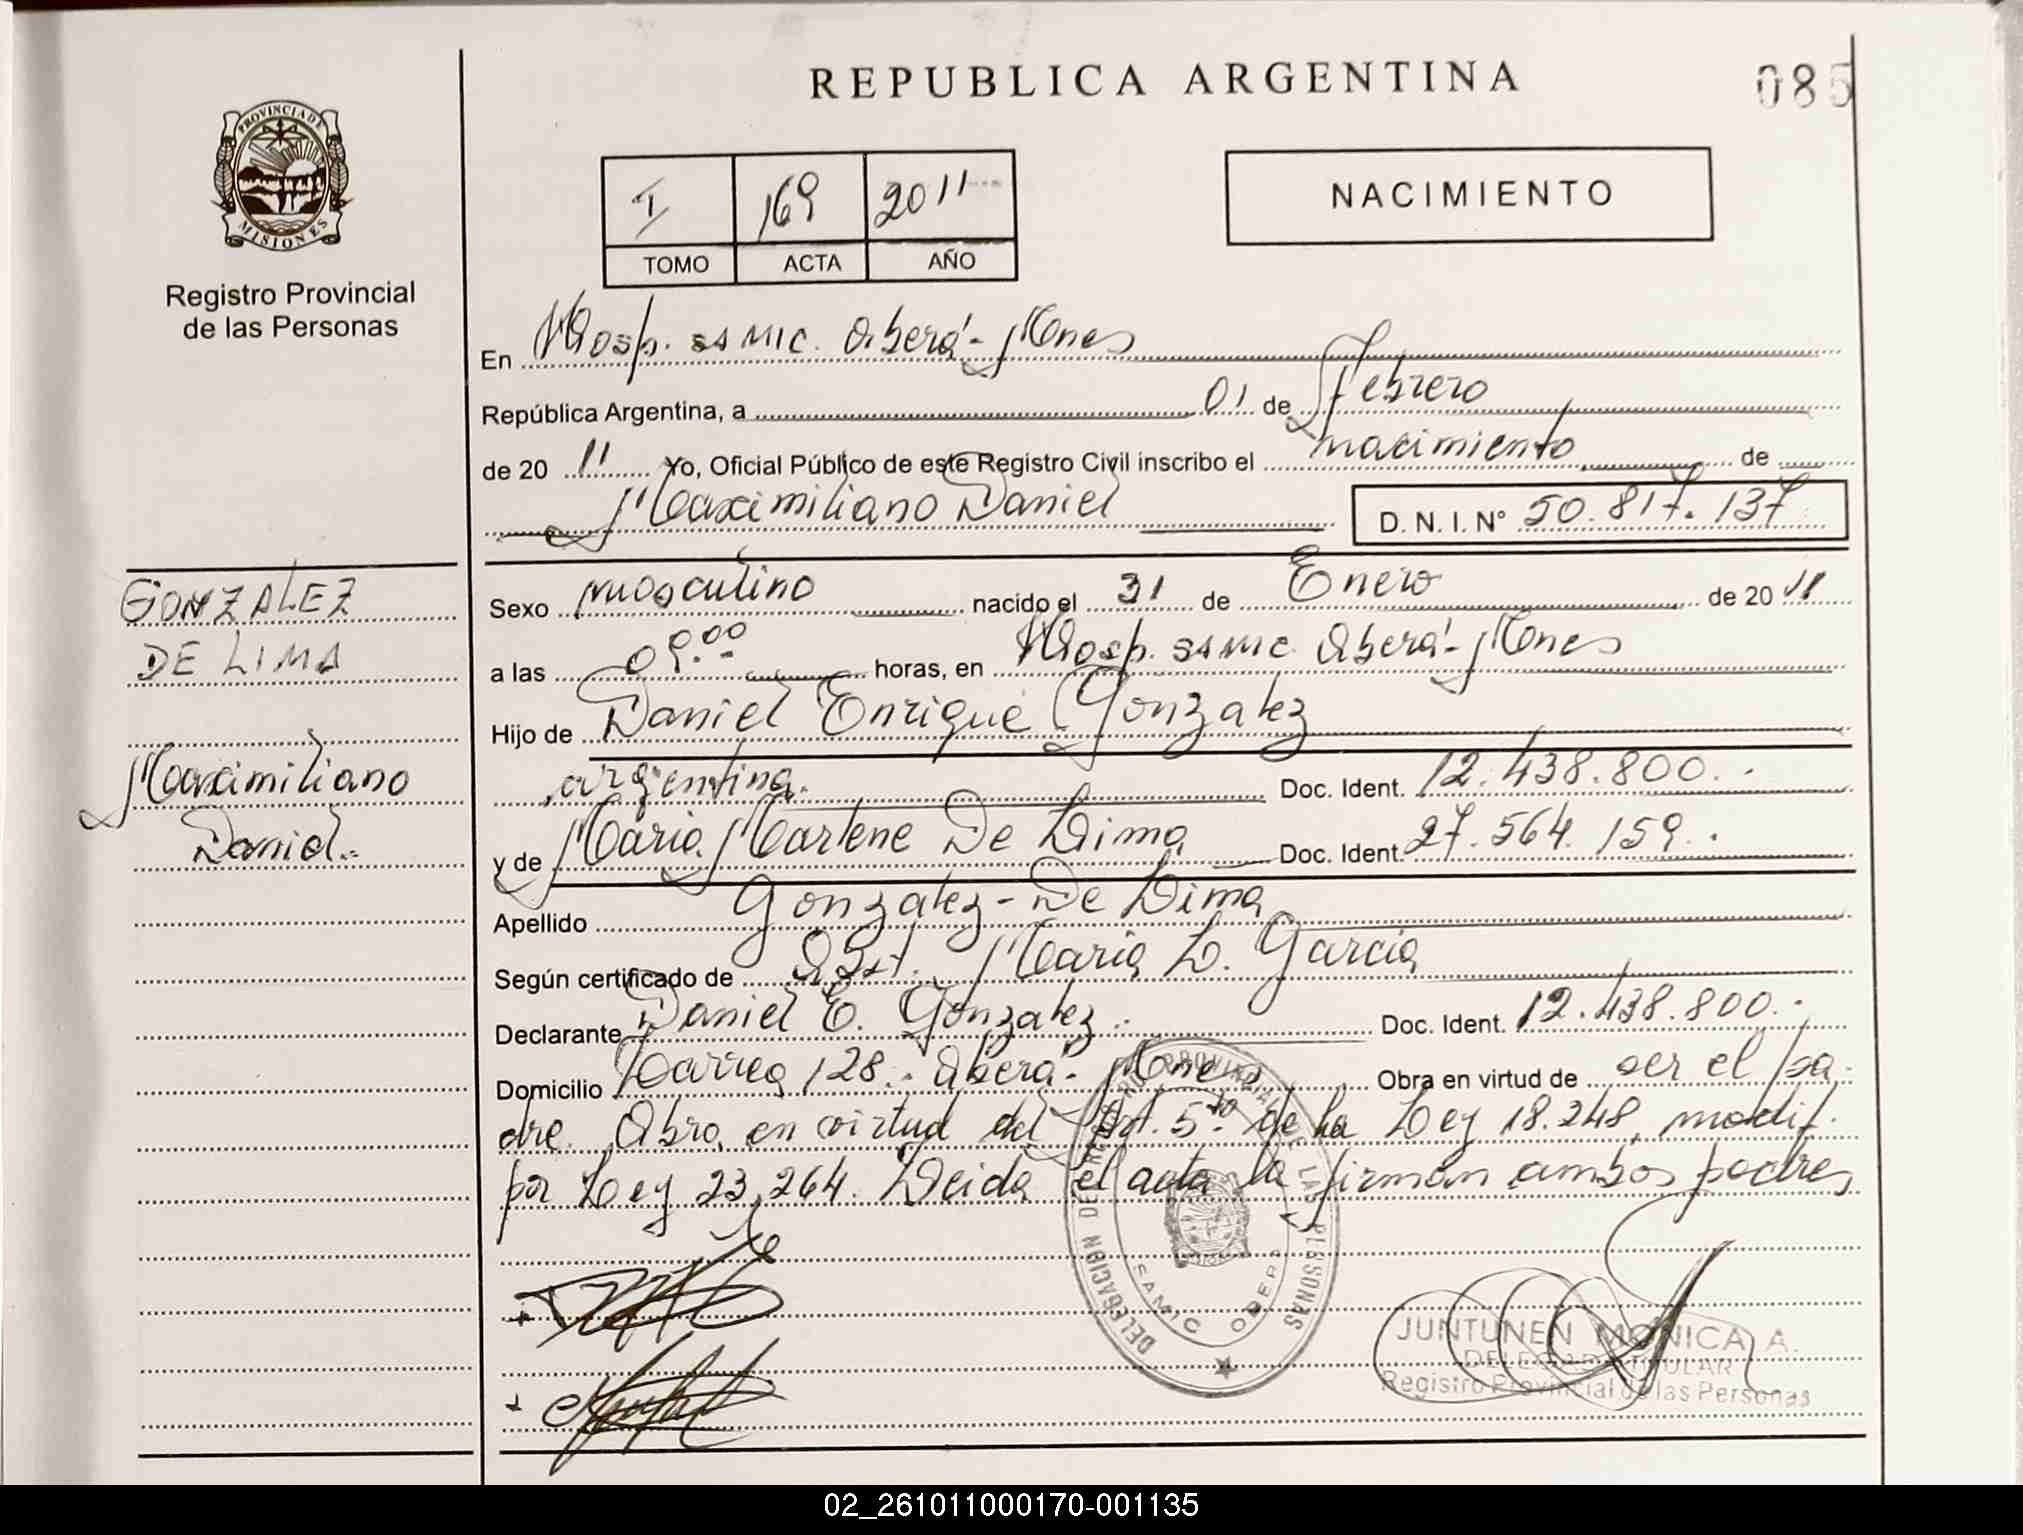 REPUBLICA ARGENTINA
085
PROVINCIA DE
MISIONES
Registro Provincial
de las Personas
I 169 2011
TOMO ACTA AÑO
NACIMIENTO
En Hosp. SAMIC. Oberá - Mnes
República Argentina, a 01 de Febrero
de 20 11 Yo, Oficial Público de este Registro Civil inscribo el nacimiento de
Maximiliano Daniel D.N.I. N° 50.817.137
GONZALEZ
DE LIMA
Maximiliano
Daniel.-
Sexo masculino nacido el 31 de Enero de 20 11
a las 09.00 horas, en Hosp. SAMIC. Oberá - Mnes
Hijo de Daniel Enrique Gonzalez
argentina. Doc. Ident. 12.438.800.-
y de Maria Marlene De Lima Doc. Ident. 27.564.159.-
Apellido Gonzalez - De Lima
Según certificado de Obst. Maria L. Garcia
Declarante Daniel E. Gonzalez.- Doc. Ident. 12.438.800.-
Domicilio Larrea 128.- Oberá - Mnes Obra en virtud de ser el pa-
dre. Obro en virtud del Art. 5to de la Ley 18.248, modif.
por Ley 23.264. Leida el acta la firman ambos padres
DELEGACION DE REGISTRO PROVINCIAL DE LAS PERSONAS
SAMIC OBERA
JUNTUNEN MONICA A.
DELEGADA TITULAR
Registro Provincial de las Personas
02_261011000170-001135